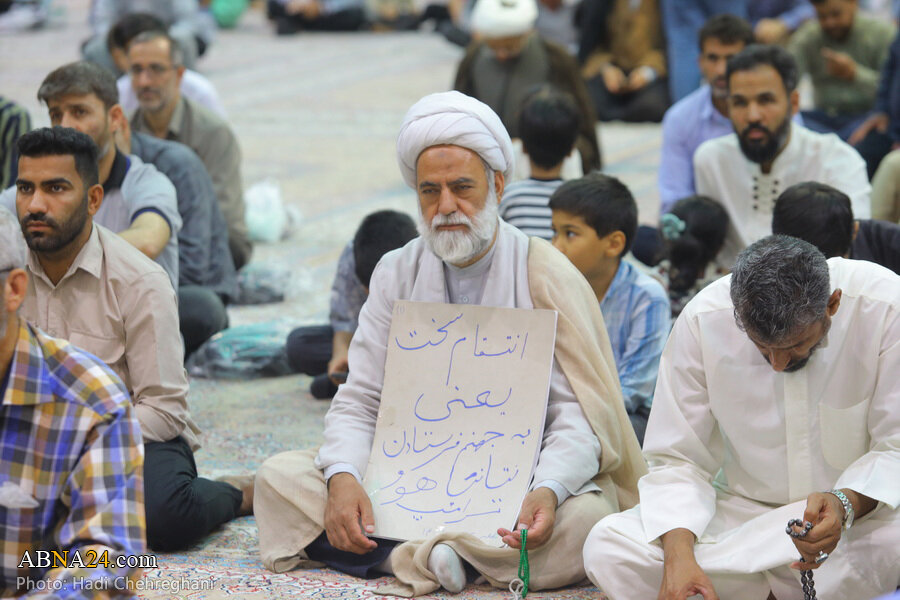 انتقام سخت
یعنی
به جهنم فرستادن
نتانیاهو و
ترامپ
ABNA24.com
Photo: Hadi Cheraghani